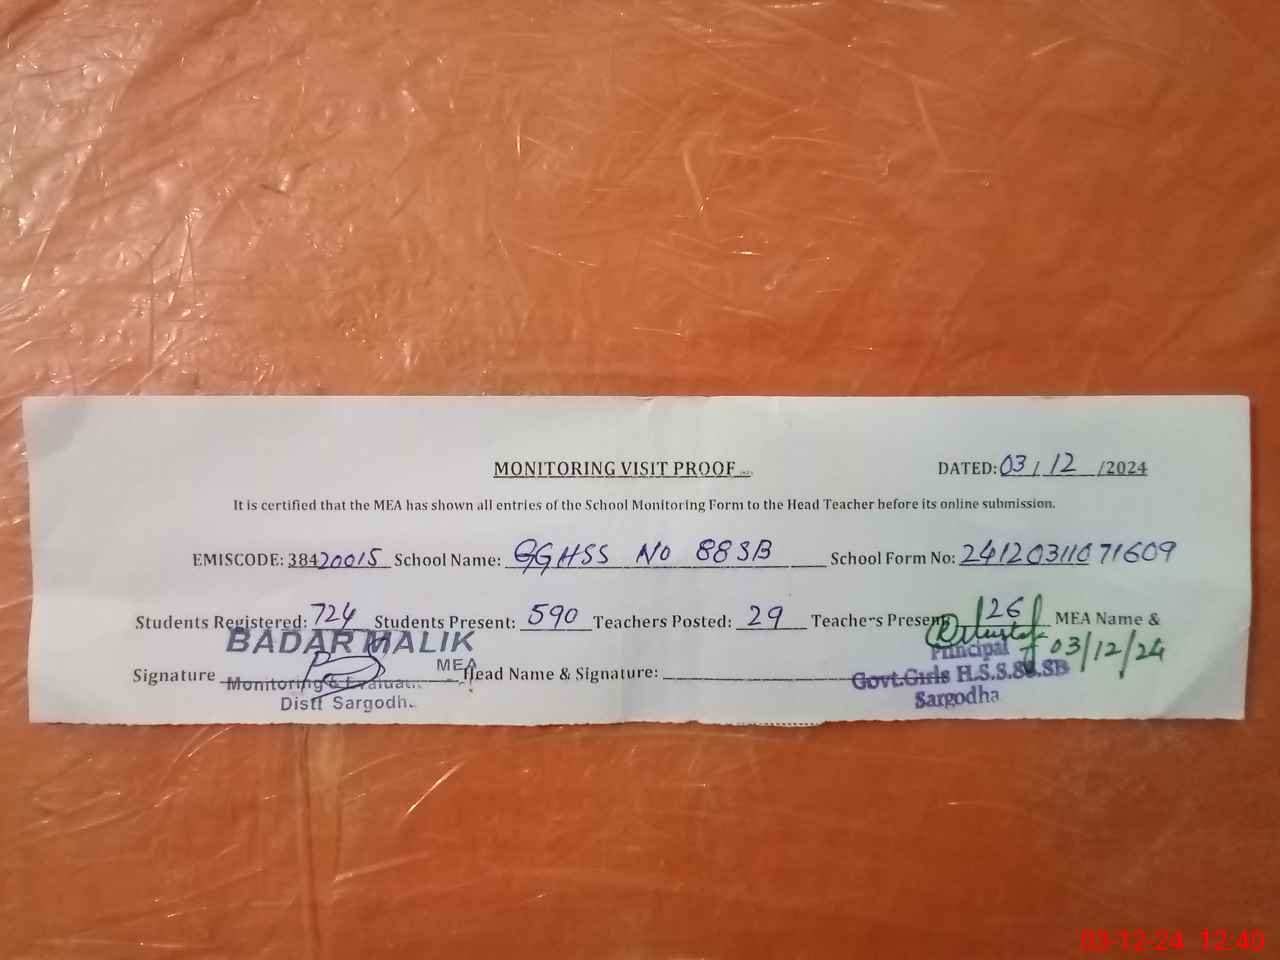 MONITORING VISIT PROOF
DATED: 03 / 12 /2024
It is certified that the MEA has shown all entries of the School Monitoring Form to the Head Teacher before its online submission.
EMISCODE: 38420015 School Name: GGHSS No 88SB School Form No: 24120311071609
Students Registered: 724 Students Present: 590 Teachers Posted: 29 Teachers Present 26 MEA Name &
BADAR MALIK
03/12/24
Principal
MEA
Signature Head Name & Signature:
Monitoring & Evaluati
Govt.Girls H.S.S.88.SB
Distt Sargodh
Sargodha
03-12-24 12:40